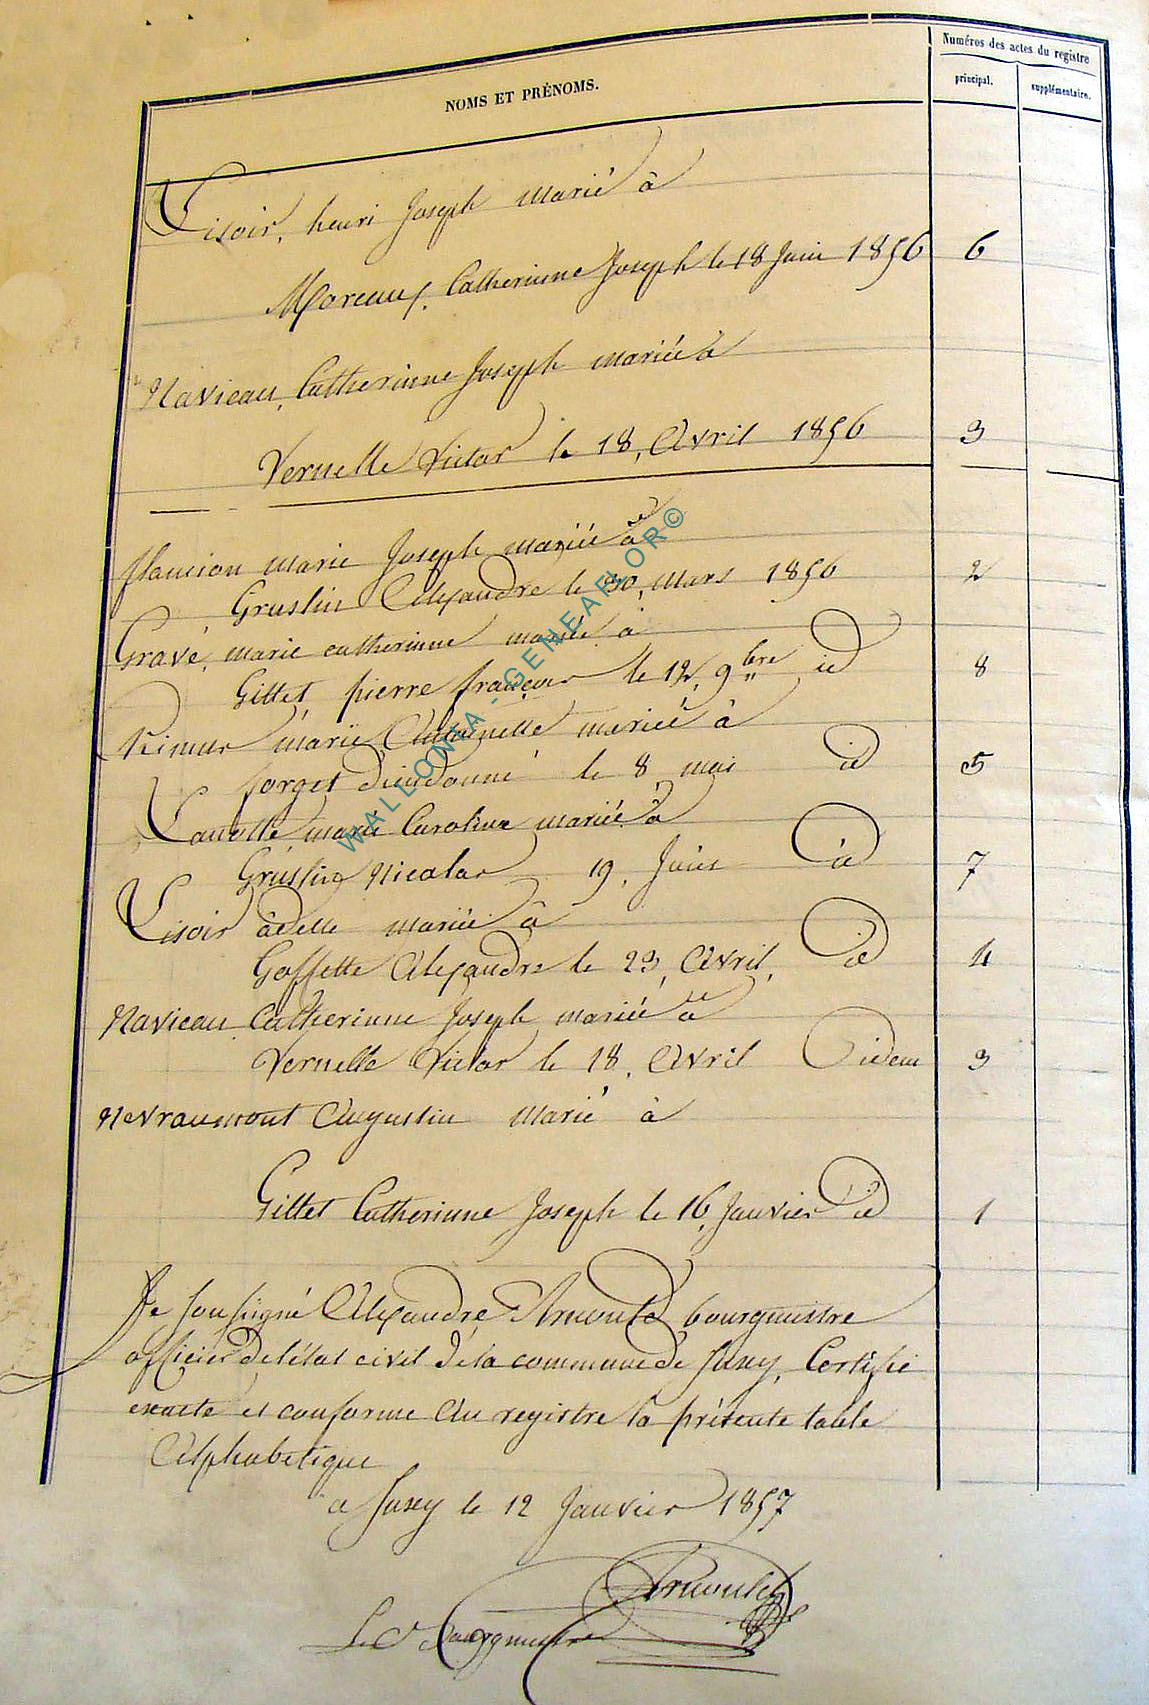 Numéros des actes du registre
NOMS ET PRÉNOMS.
principal.
supplémentaire.
Lisoir, henri Joseph marié à
Moreaux, Catherinne Joseph le 18 Juin 1856 6
Navieau, Catherinne Joseph mariée à
Vernelle Victor le 18, Avril 1856 3
flamion marie Joseph mariée à
Gruslin Alexandre le 30, mars 1856 2
Gravé, marie catherinne mariée à
Gillet, pierre françois le 12, 9bre id 8
marie Antoinette mariée à
forget dieudonné le 8 mai id 5
marie Caroline mariée à
Gruslin Nicolas 19, Juin id 7
Lisoir adelle mariée à
Goffette Alexandre le 23, Avril, id 4
Navieau Catherinne Joseph mariée à
Vernelle Victor le 18, Avril idem 3
Nevraumont Augustin marié à
Gillet Catherinne Joseph le 16, Janvier id 1
Je soussigné Alexandre Arnould bourgmestre
officier de l'état civil de la commune de Jusey, Certifie
exacte et conforme au registre la présente table
Alphabetique
a Jusey le 12 Janvier 1857
Arnould
Le Bourgmestre
WALLONIA - GENEAFLOR©